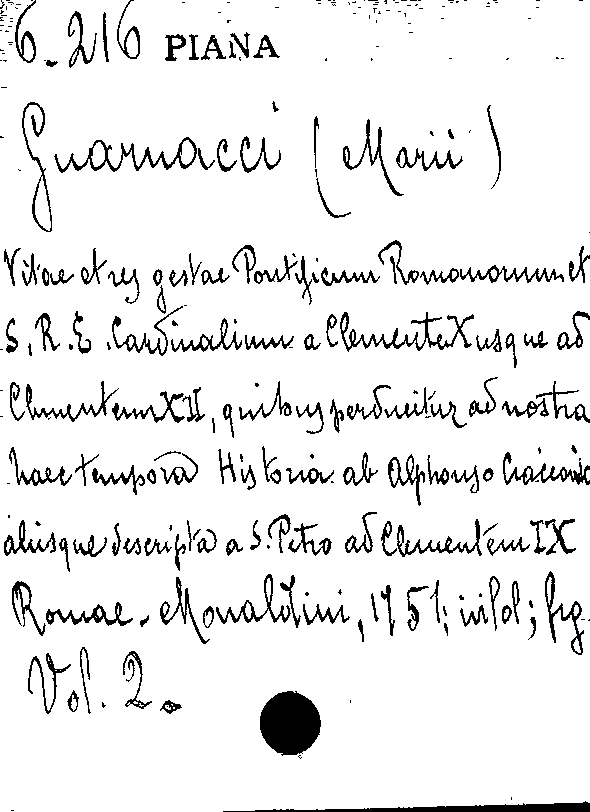 6.216 PIANA
Guarnacci (Marii)
Vitae et res gestae Pontificum Romanorum et
S. R. E. Cardinalium a Clemente X usque ad
Clementem XII, quibus perducitur ad nostra
haec tempora Historia ab Alphonso Ciaconio
aliisque descripta a S. Petro ad Clementem IX
Romae. Monaldini, 1751; in fol; fig.
Vol. 2.